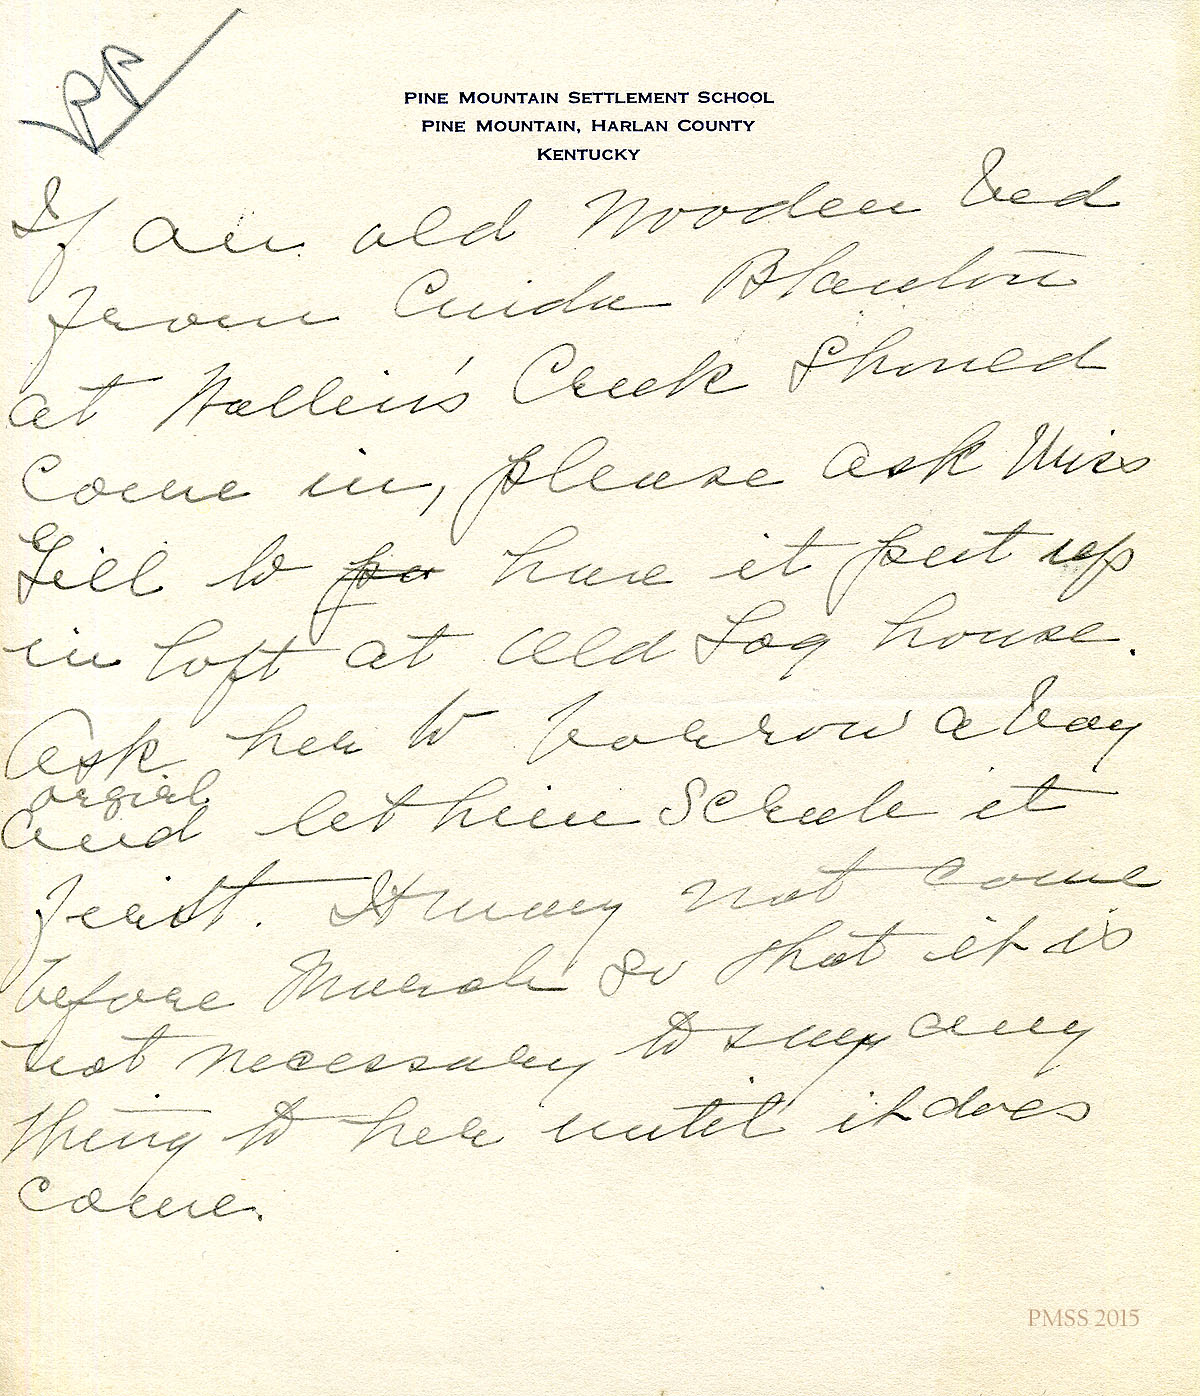 PINE MOUNTAIN SETTLEMENT SCHOOL
PINE MOUNTAIN, HARLAN COUNTY
KENTUCKY
If an old wooden bed
from Blanton
at Wallin's Creek should
come in, please ask Miss
Gill to have it put up
in loft at Old Log house.
Ask her to borrow a boy
or girl
and let him scrub it
first. It may not come
before March so that it is
not necessary to say any
thing to her until it does
come.
PMSS 2015